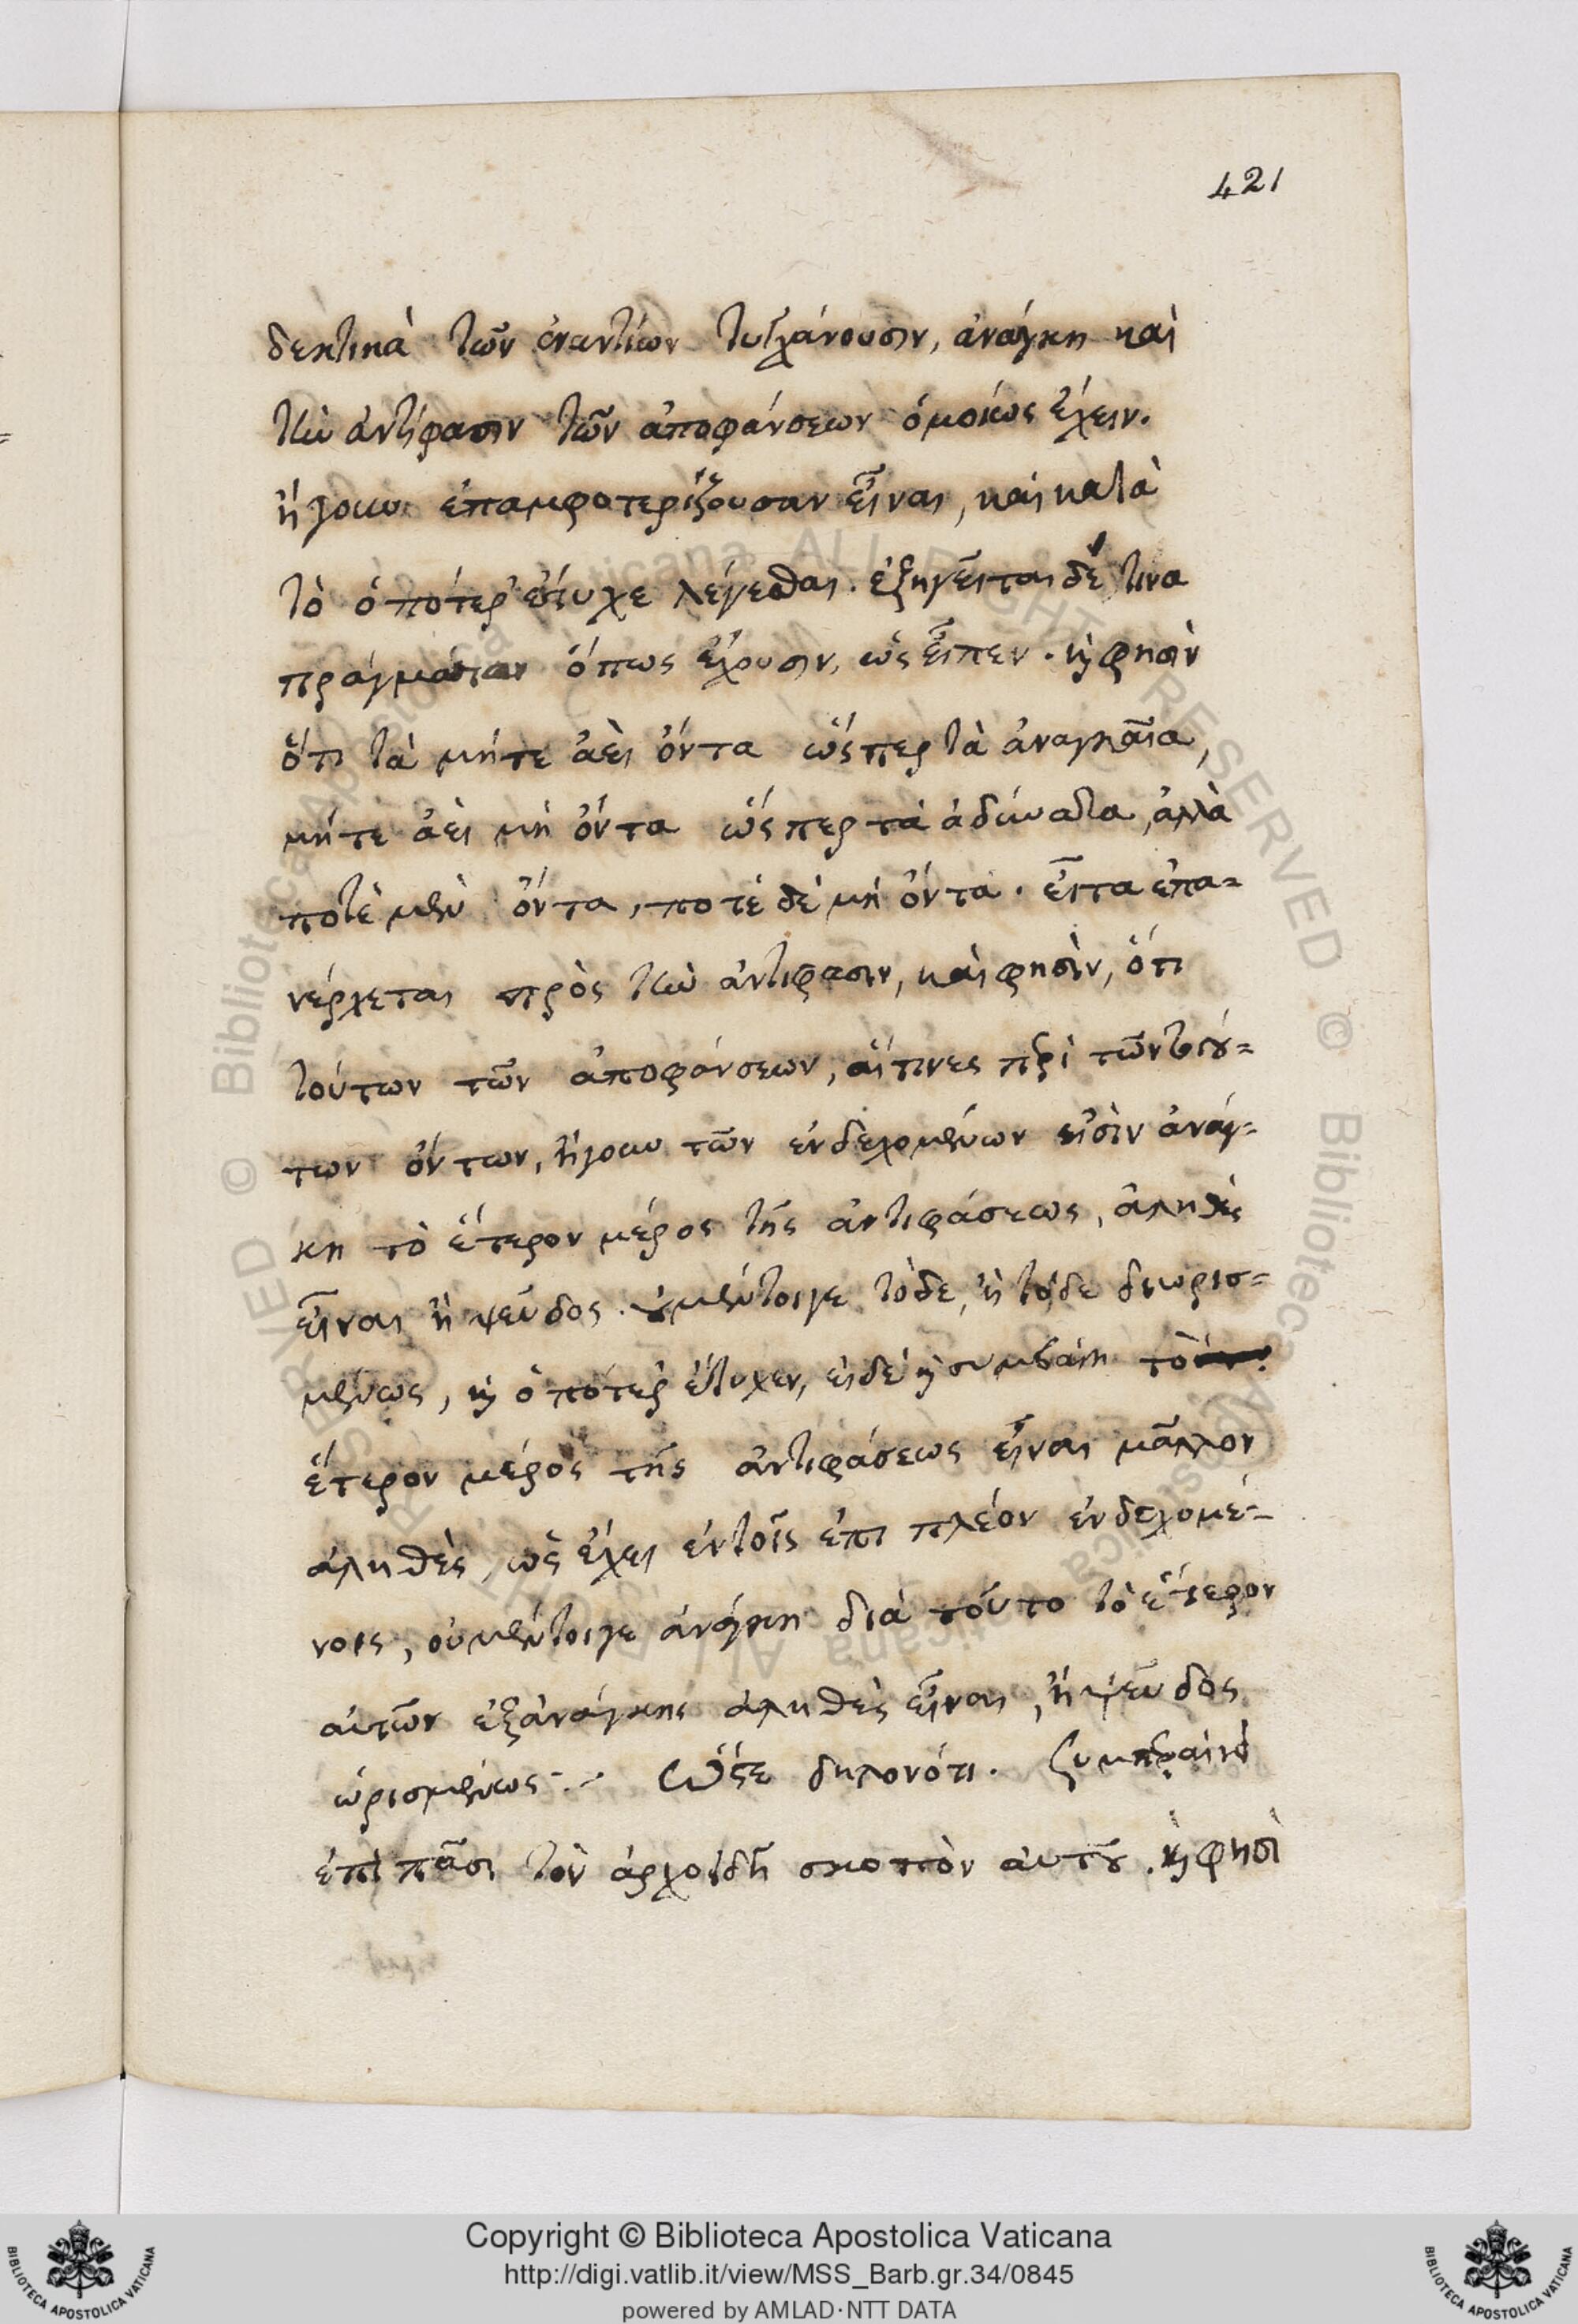 421
δεκτικὰ τῶν ἐναντίων τυγχάνουσιν, ἀνάγκη καὶ
τὴν ἀντίφασιν τῶν ἀποφάνσεων ὁμοίως ἔχειν.
ἤγουν ἐπαμφοτερίζουσαν εἶναι, καὶ κατὰ
τὸ ὁπότερ' ἔτυχε λέγεσθαι. ἐξηγεῖται δέ τινα
πραγμάτων ὅπως ἔχουσιν, ὡς εἶπεν. κ φησὶν
ὅτι τὰ μήτε ἀεὶ ὄντα ὥςπερ τὰ ἀναγκαῖα,
μήτε ἀεὶ μὴ ὄντα ὥςπερ τὰ ἀδύνατα, ἀλλὰ
ποτὲ μὲν ὄντα, ποτὲ δὲ μὴ ὄντα. εἶτα ἐπα=
νέρχεται πρὸς τὴν ἀντίφασιν, καὶ φησὶν, ὅτι
τούτων τῶν ἀποφάνσεων, αἵτινες πρὶ τῶν τοιȣ́=
των ὄντων, ἤγουν τῶν ἐνδεχομένων εἰσὶν ἀνάγ=
κη τὸ ἕτερον μέρος τῆς ἀντιφάσεως, ἀληθὲς
εἶναι ἢ ψεύδος. ȣ̓ μέντοιγε τόδε, ἢ τόδε διωρισ=
μένως, κ ὁπότερ' ἔτυχεν, εἰ δέ κ συμβαίη τὸ
ἕτερον μέρος τῆς ἀντιφάσεως εἶναι μᾶλλον
ἀληθὲς, ὡς ἔχει ἐν τοῖς ἐπι πλέον ἐνδεχομέ=
νοις, οὐ μέντοιγε ἀνάγκη διὰ τοῦτο τὸ ἕτερον
αὐτῶν ἐξ ἀνάγκης ἀληθὲς εἶναι, ἢ ψεῦδος
ὡρισμένως. Ὥςτε δηλονότι. Συμπεραίνει
ἐπὶ πᾶσι τὸν ἀρχοειδῆ σκοπὸν αὐτȣ͂. κ φησὶ
Copyright © Biblioteca Apostolica Vaticana
http://digi.vatlib.it/view/MSS_Barb.gr.34/0845
powered by AMLAD·NTT DATA